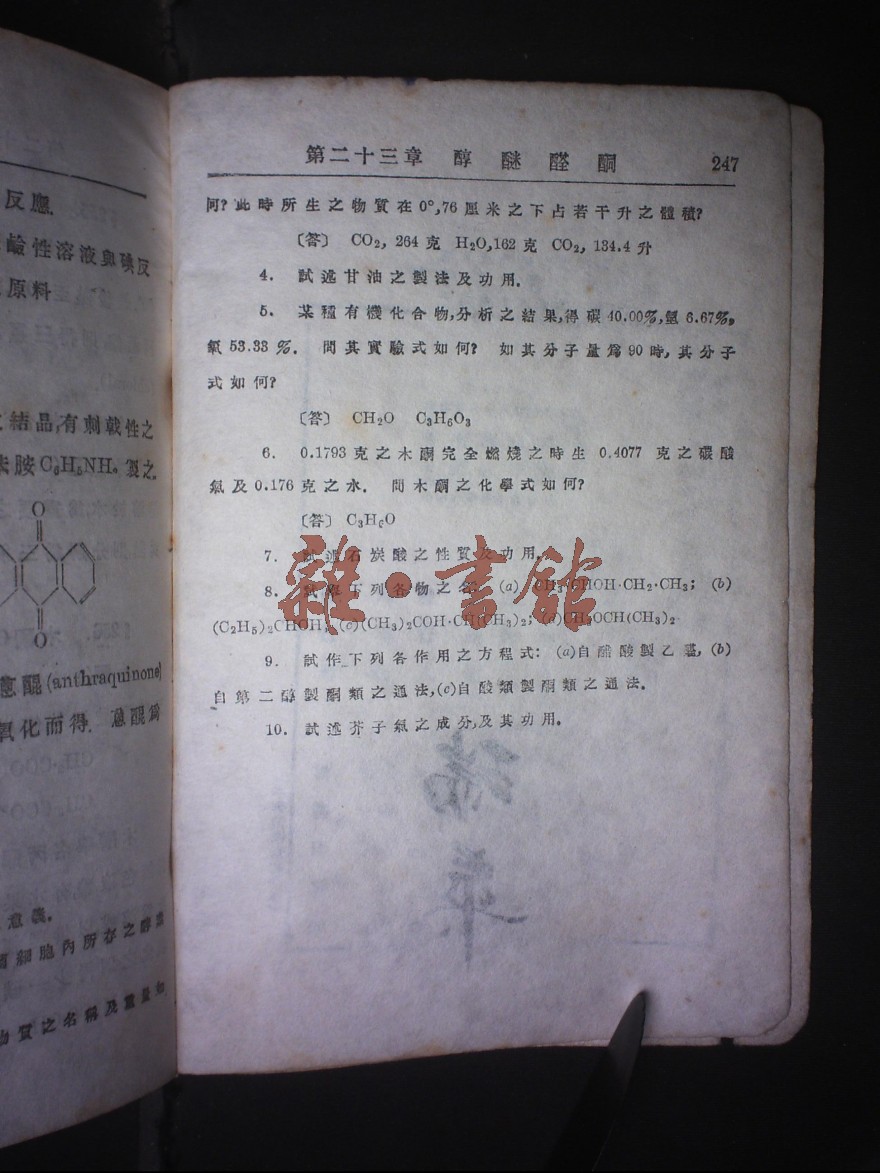 反應.
鹼性溶液與碘反
原料
結晶,有刺戟性之
O
O
(anthraquinone)
氧化而得. 蒽醌爲
意義.
細胞內所存之
物質之名稱及重量如
第二十三章 醇 醚 醛 酮 247
何? 此時所生之物質在0°,76厘米之下占若干升之體積?
〔答〕 CO₂, 264 克 H₂O,162 克 CO₂, 134.4 升
4. 試述甘油之製法及功用.
5. 某種有機化合物,分析之結果,得碳 40.00%,氫 6.67%,
氧 53.33 %. 問其實驗式如何? 如其分子量爲 90 時,其分子
式如何?
〔答〕 CH₂O C₃H₆O₃
6. 0.1793 克之木酮完全燃燒之時生 0.4077 克之碳酸
氣及 0.176 克之水. 問木酮之化學式如何?
〔答〕 C₃H₆O
7. 試述石炭酸之性質及功用.
8. 下列各物之名: (a) CH₃·CHOH·CH₂·CH₃; (b)
(C₂H₅)₂CHOH; (c)(CH₃)₂COH·CH(CH₃)₂; (d)CH₃OCH(CH₃)₂
9. 試作下列各作用之方程式: (a)自醋酸製乙醛, (b)
自第二醇製酮類之通法,(c)自酸類製酮類之通法.
10. 試述芥子氣之成分及其功用.
雜·書館